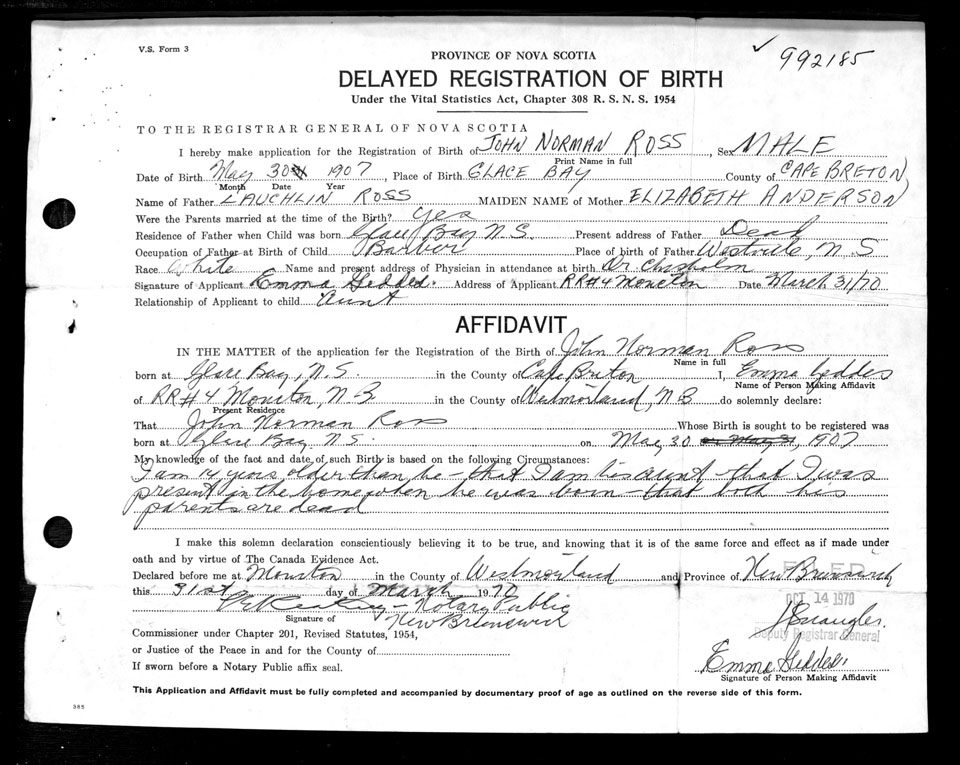 V.S. Form 3
992185
PROVINCE OF NOVA SCOTIA
DELAYED REGISTRATION OF BIRTH
Under the Vital Statistics Act, Chapter 308 R. S. N. S. 1954
TO THE REGISTRAR GENERAL OF NOVA SCOTIA
I hereby make application for the Registration of Birth of JOHN NORMAN ROSS, Sex MALE
Print Name in full
Date of Birth May 30 1907, Place of Birth GLACE BAY County of CAPE BRETON
Month Date Year
Name of Father LAUCHLIN ROSS MAIDEN NAME of Mother ELIZABETH ANDERSON
Were the Parents married at the time of the Birth? yes
Residence of Father when Child was born Glace Bay N.S. Present address of Father Dead
Occupation of Father at Birth of Child Barber Place of birth of Father Westville, N.S
Race White Name and present address of Physician in attendance at birth Dr Chisholm
Signature of Applicant Emma Geddes. Address of Applicant RR#4 Moncton Date March 31/70
Relationship of Applicant to child Aunt
AFFIDAVIT
IN THE MATTER of the application for the Registration of the Birth of John Norman Ross
Name in full
born at Glace Bay, N.S. in the County of Cape Breton I, Emma Geddes
Name of Person Making Affidavit
of RR#4 Moncton, N-B in the County of Westmorland, N-B do solemnly declare:
Present Residence
That John Norman Ross Whose Birth is sought to be registered was
born at Glace Bay N.S. on May 30 or May 31, 1907
My knowledge of the fact and date of such Birth is based on the following Circumstances:
I am 14 years older than he - that I am his aunt - that I was
present in the home when he was born - that both his
parents are dead
I make this solemn declaration conscientiously believing it to be true, and knowing that it is of the same force and effect as if made under
oath and by virtue of The Canada Evidence Act.
Declared before me at Moncton in the County of Westmorland and Province of New Brunswick
FILED
this 31st day of March 1970
OCT 14 1970
- Notary Public
Signature of New Brunswick
Deputy Registrar General
Commissioner under Chapter 201, Revised Statutes, 1954,
or Justice of the Peace in and for the County of
Emma Geddes
If sworn before a Notary Public affix seal.
Signature of Person Making Affidavit
This Application and Affidavit must be fully completed and accompanied by documentary proof of age as outlined on the reverse side of this form.
385